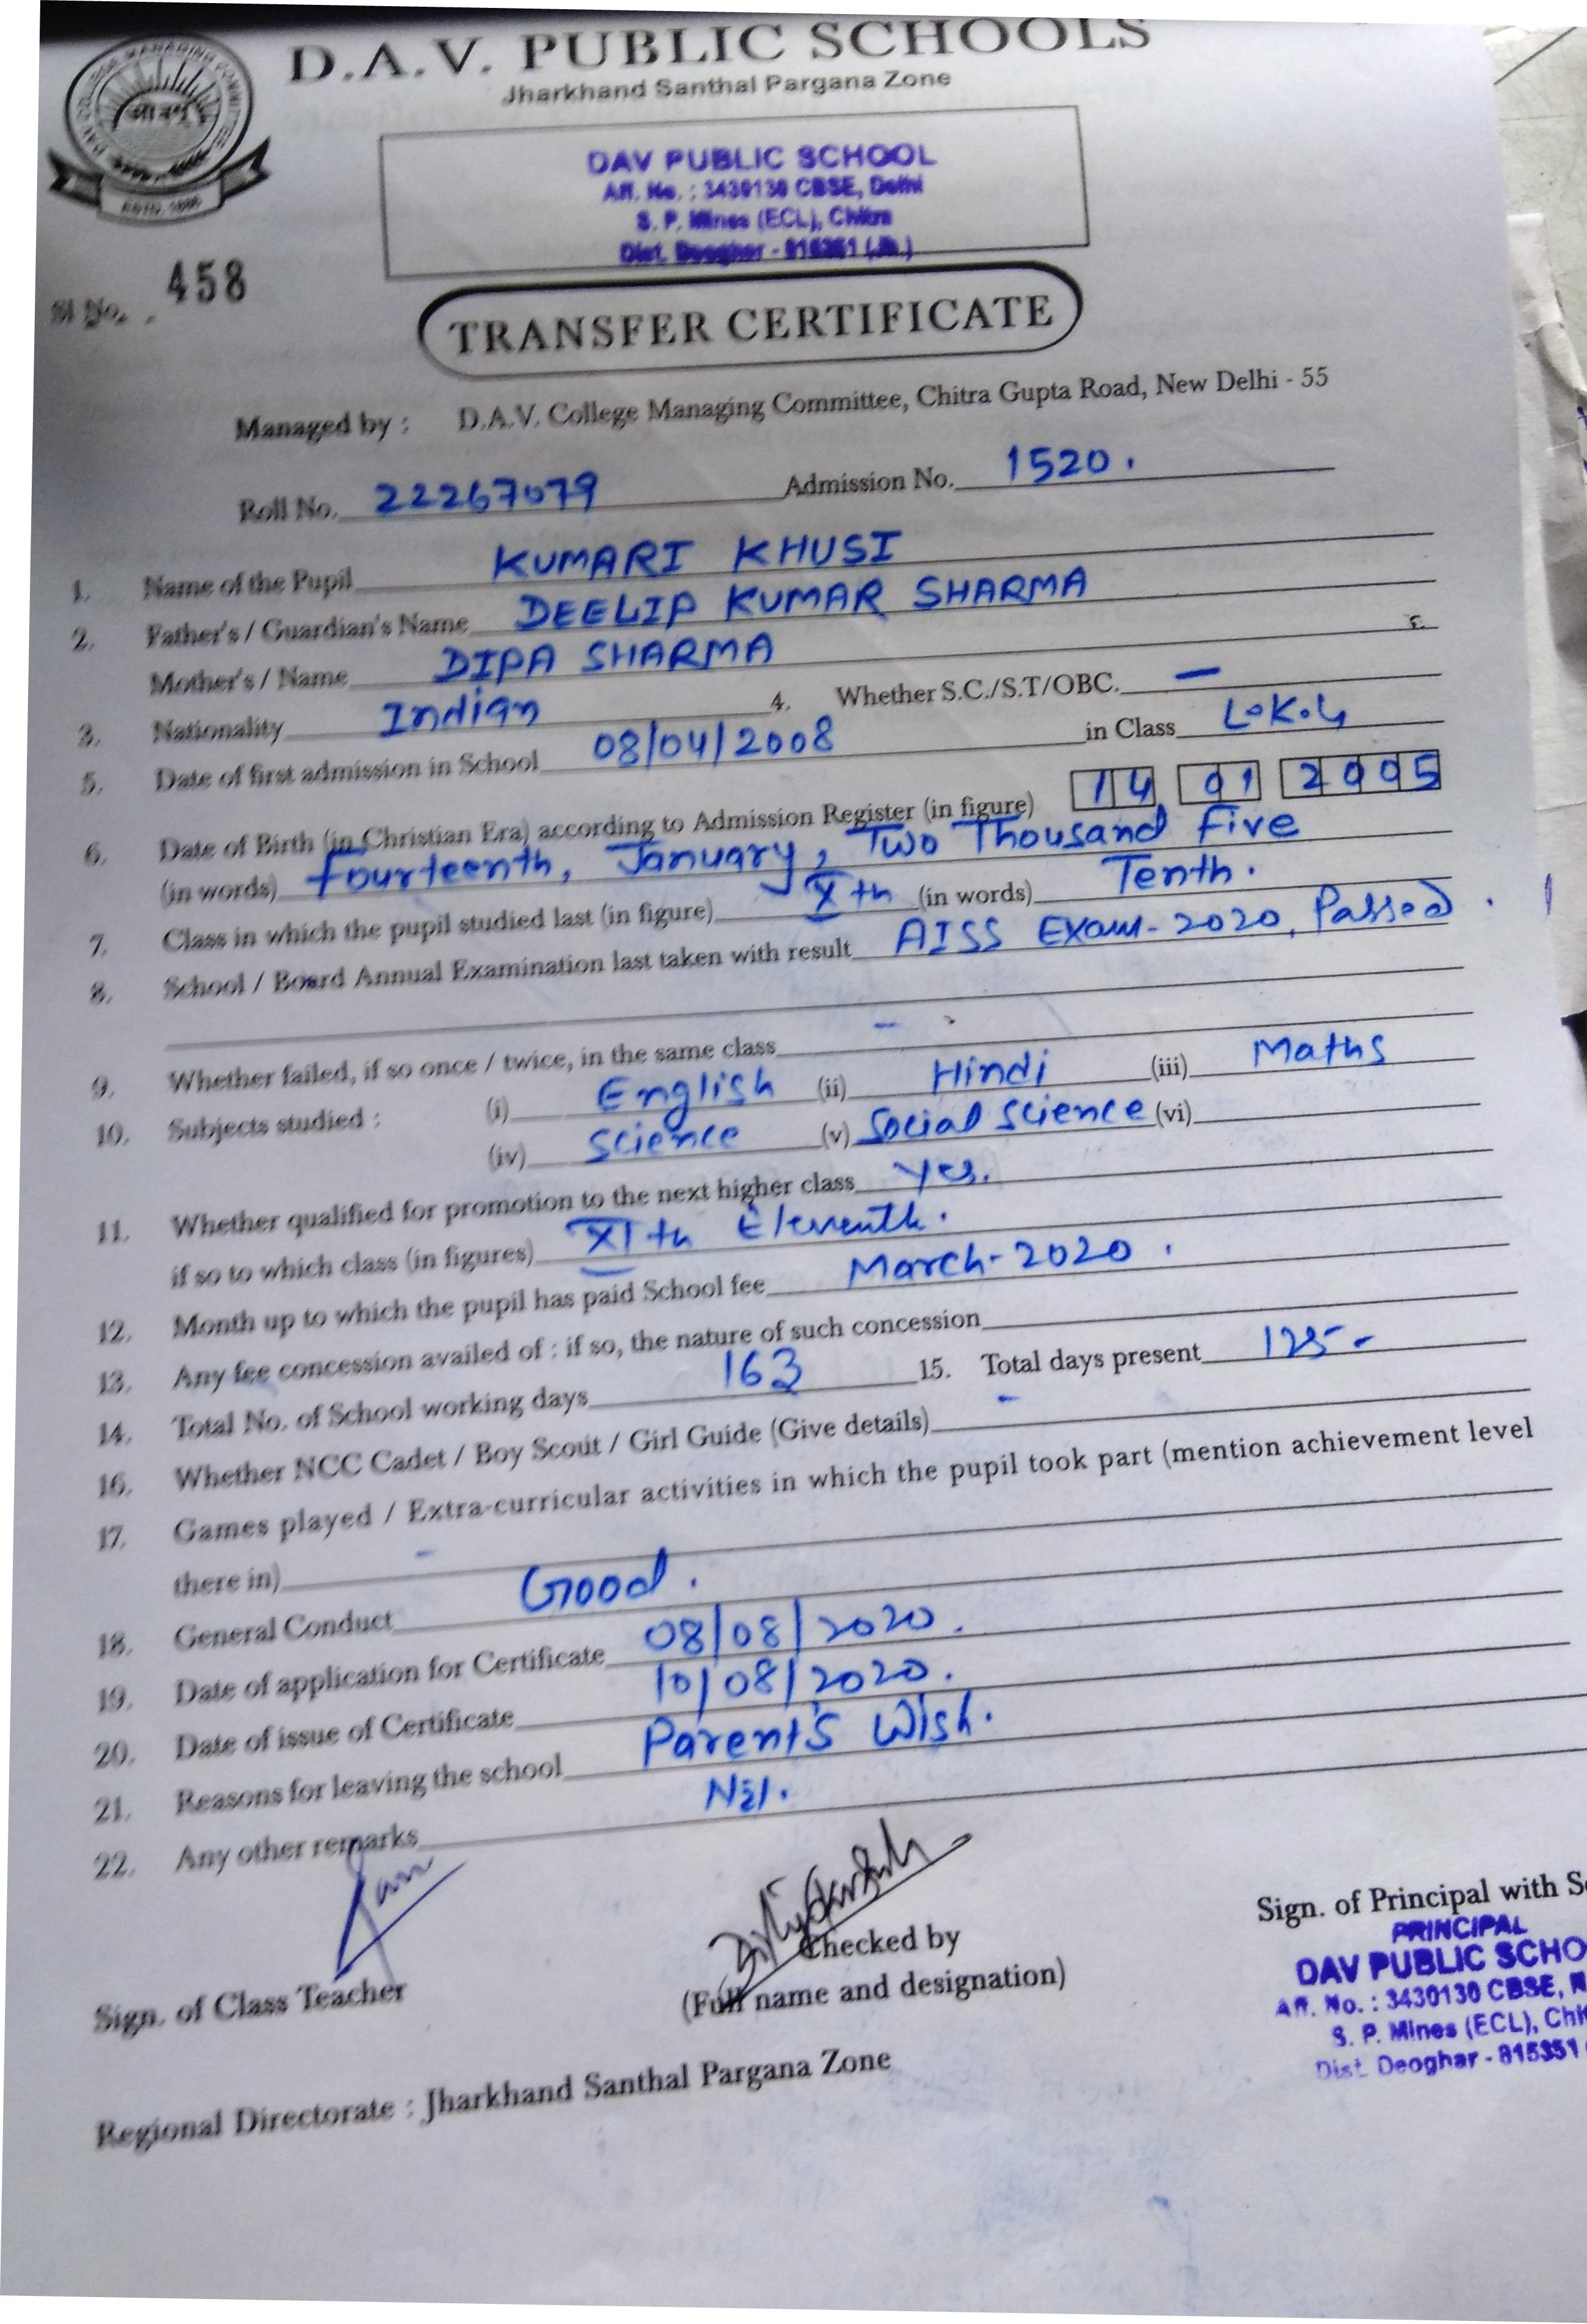 D.A.V. PUBLIC SCHOOLS
Jharkhand Santhal Pargana Zone
ESTD. 1886
DAV PUBLIC SCHOOL
Aff. No. : 3430130 CBSE, Delhi
S. P. Mines (ECL), Chitra
Dist. Deoghar - 815351 (Jh.)
Sl No. 458
TRANSFER CERTIFICATE
Managed by : D.A.V. College Managing Committee, Chitra Gupta Road, New Delhi - 55
Roll No. 22267079 Admission No. 1520.
1. Name of the Pupil KUMARI KHUSI
2. Father's / Guardian's Name DEELIP KUMAR SHARMA
Mother's / Name DIPA SHARMA
3. Nationality Indian 4. Whether S.C./S.T/OBC. —
5. Date of first admission in School 08/04/2008 in Class L.K.G
6. Date of Birth (in Christian Era) according to Admission Register (in figure) 14 01 2005
(in words) Fourteenth, January, Two Thousand Five
7. Class in which the pupil studied last (in figure) Xth (in words) Tenth.
8. School / Board Annual Examination last taken with result AISS Exam-2020, Passed.
9. Whether failed, if so once / twice, in the same class -
10. Subjects studied : (i) English (ii) Hindi (iii) Maths
(iv) Science (v) Social Science (vi)
11. Whether qualified for promotion to the next higher class Yes.
if so to which class (in figures) XIth Eleventh.
12. Month up to which the pupil has paid School fee March-2020.
13. Any fee concession availed of : if so, the nature of such concession
14. Total No. of School working days 163 15. Total days present 125-
16. Whether NCC Cadet / Boy Scout / Girl Guide (Give details) -
17. Games played / Extra-curricular activities in which the pupil took part (mention achievement level
there in) -
18. General Conduct Good.
19. Date of application for Certificate 08/08/2020.
20. Date of issue of Certificate 10/08/2020.
21. Reasons for leaving the school Parent's Wish.
22. Any other remarks Nil.
Sign. of Class Teacher
Checked by
(Full name and designation)
Sign. of Principal with
PRINCIPAL
DAV PUBLIC SCHO
Aff. No. : 3430130 CBSE,
S. P. Mines (ECL), Chi
Dist. Deoghar - 815351
Regional Directorate : Jharkhand Santhal Pargana Zone